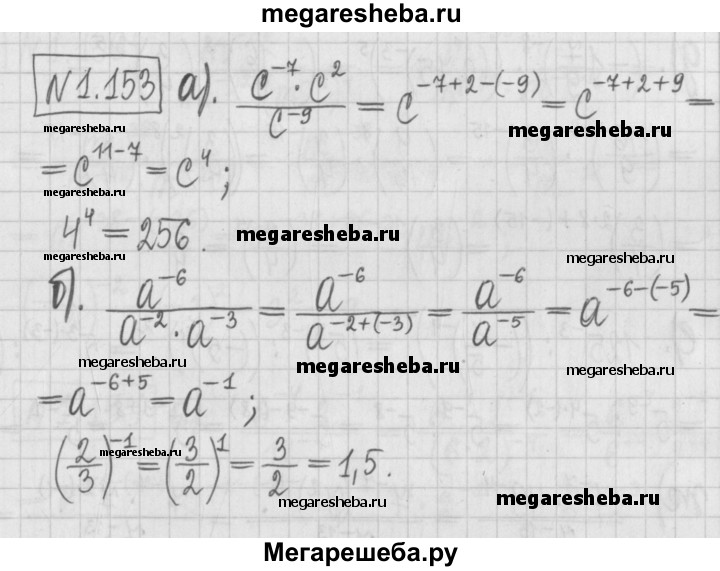 megaresheba.ru
№1.153 а). \frac{c^{-7} \cdot c^{2}}{c^{-9}} = c^{-7+2-(-9)} = c^{-7+2+9} =
megaresheba.ru megaresheba.ru
= c^{11-7} = c^{4};
megaresheba.ru
4^{4} = 256. megaresheba.ru megaresheba.ru
б). \frac{a^{-6}}{a^{-2} \cdot a^{-3}} = \frac{a^{-6}}{a^{-2+(-3)}} = \frac{a^{-6}}{a^{-5}} = a^{-6-(-5)} =
megaresheba.ru megaresheba.ru megaresheba.ru
= a^{-6+5} = a^{-1};
(\frac{2}{3})^{-1} = (\frac{3}{2})^{1} = \frac{3}{2} = 1,5.
megaresheba.ru
megaresheba.ru megaresheba.ru
Мегарешеба.ру